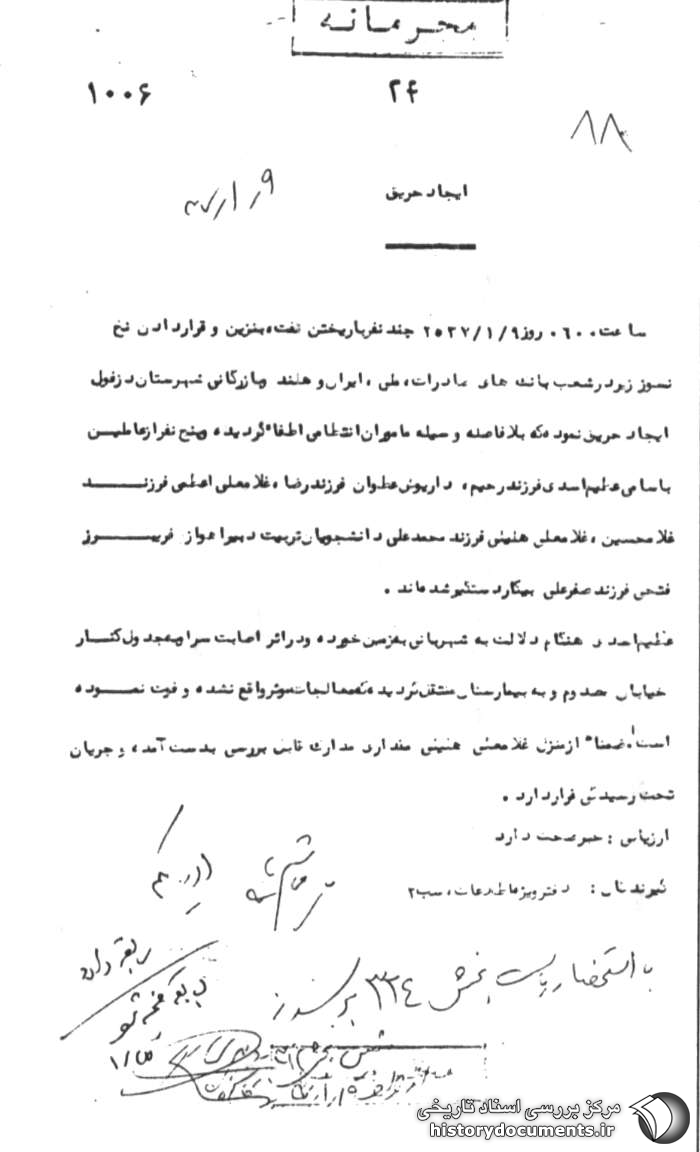 محرمانه
۱۰۰۶
۲۴
۸۸
ایجاد حریق
۹/۱/۳۷
ساعت ۰۶۰۰ روز ۲۵۳۷/۱/۹ چند نفر با ریختن نفت، بنزین و قرار دادن نخ
نسوز زیر در شعب بانک های صادرات، ملی، ایران و هلند وبازرگانی شهرستان دزفول
ایجاد حریق نموده که بلافاصله وسیله ماموران انتظامی اطفاء گردیده وپنج نفر از عاملین
باسامی عظیم اسدی فرزند رحیم، داریوش عطوان فرزند رضا، غلامعلی اعظمی فرزند
غلامحسین، غلامعلی هنینی فرزند محمدعلی دانشجویان تربیت دبیر اهواز فریبرز
فتحی فرزند صفرعلی بیکار دستگیر شده اند.
عظیم اسدی هنگام دلالت به شهربانی به زمین خورده ودر اثر اصابت سر او به جدول کنار
خیابان مصدوم و به بیمارستان منتقل گردیده که معالجات موثر واقع نشده و فوت نموده
است. ضمناً از منزل غلامعلی هنینی مقداری مدارک قابل بررسی بدست آمده و جریان
تحت رسیدگی قرار دارد.
ارزیابی : خبر صحت دارد
گیرندگان : دفتر ویژه اطلاعات، سب۲
با استحضار ریاست بخش ۳۳۴ برسد
مرکز بررسی اسناد تاریخی
historydocuments.ir